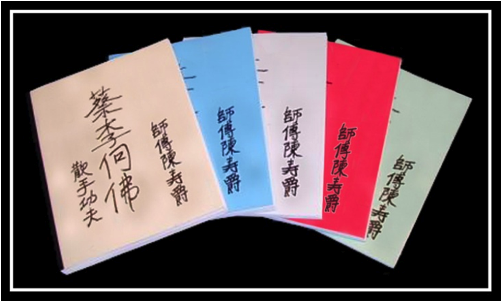 蔡李何佛
手功夫
師傅陳寿爵
師傅陳寿爵
師傅陳寿爵
師傅陳寿爵
師傅陳寿爵